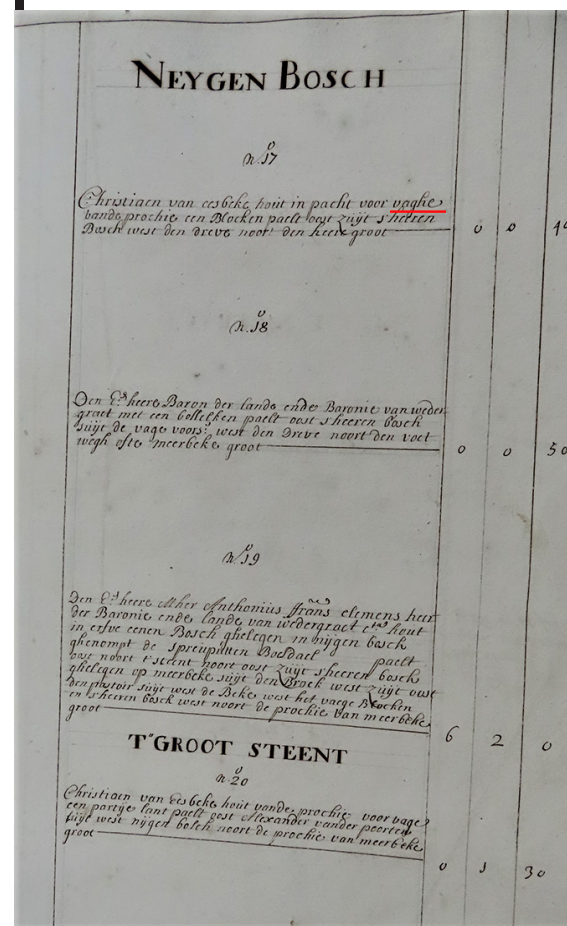 NEYGEN BOSCH
n.º 17
Christiaen van eesbeke hout in pacht voor vaghe
vande prochie een Blocken paelt oost zuijt s'heeren
Bosch west den dreve noort den heere groot
0 0
n.º 18
Den Ed.ⁿ heere Baron der lande ende Baronie van weder
graet met een bosselken paelt oost s'heeren bosch
suijt de vage voors.ᵗ west den Dreve noort den voet
wegh ofte meerbeke groot
0 0 50
n.º 19
Den Ed.ⁿ heere Mher Anthonius ffrans clemens heer
der Baronie ende lande van wedergraet etc.ᵃ hout
in erfve eenen Bosch ghelegen in nijgen bosch
ghenompt de Bosdael paelt
oost noort t'steent noort oost zuijt s'heeren bosch
ghelegen op meerbeke suijt den Broek west zuijt oost
den pastoir suijt west de Beke west het vaege Blocken
en s'heeren bosch west noort de prochie van meerbeke
groot
6 2 0
T'GROOT STEENT
n.º 20
Christiaen van Eesbeke hout vande prochie voor vage
een partije lant paelt oost Alexander vander poorten
suijt west nijgen bosch noort de prochie van meerbeke
groot
0 1 30